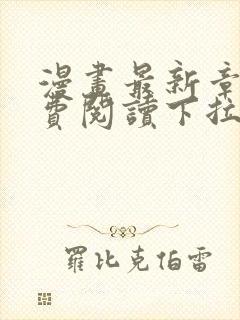 漫畫最新章
費閱讀下拉
羅比克伯雷